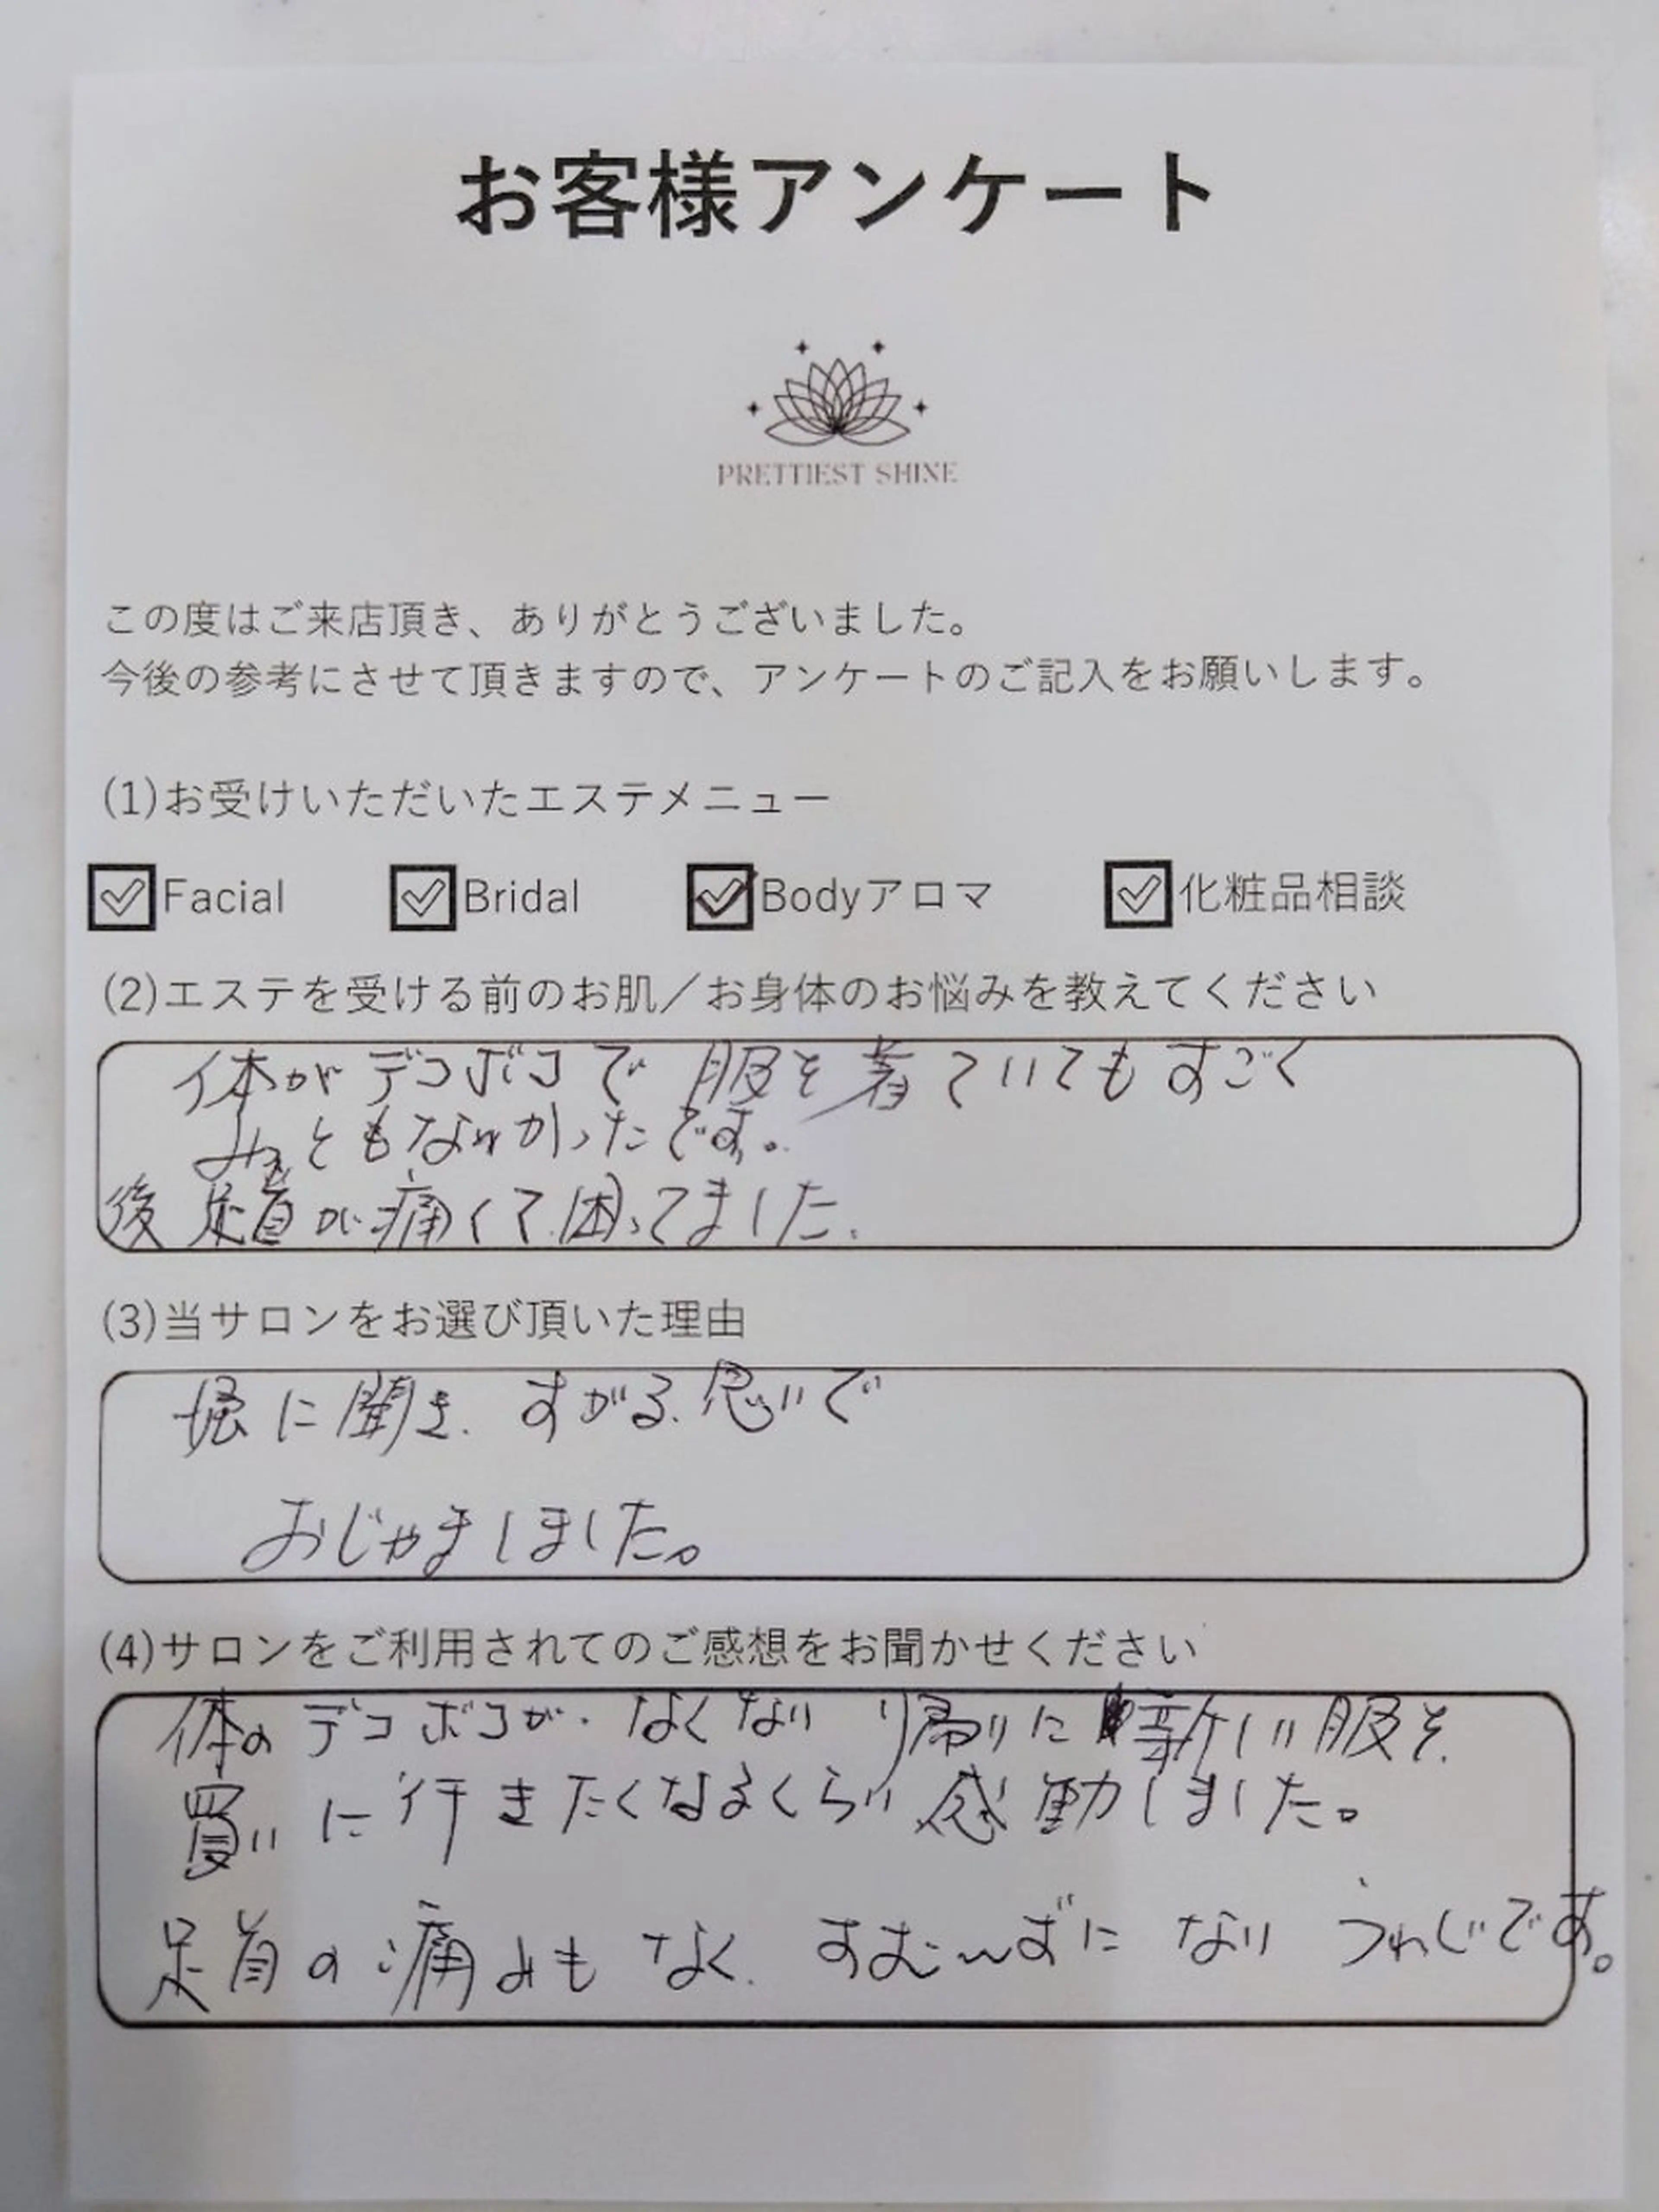 お客様アンケート
PRETTIEST SHINE
この度はご来店頂き、ありがとうございました。
今後の参考にさせて頂きますので、アンケートのご記入をお願いします。
(1)お受けいただいたエステメニュー
Facial Bridal Bodyアロマ 化粧品相談
(2)エステを受ける前のお肌／お身体のお悩みを教えてください
体がデコボコで服を着ていてもすごく
みっともなかったです。
後 足首が痛くて困ってました.
(3)当サロンをお選び頂いた理由
に聞き. すがる思いで
おじゃましました。
(4)サロンをご利用されてのご感想をお聞かせください
体のデコボコが なくなり 帰りに新しい服を
買いに行きたくなるくらい感動しました。
足首の痛みもなく. になり です。